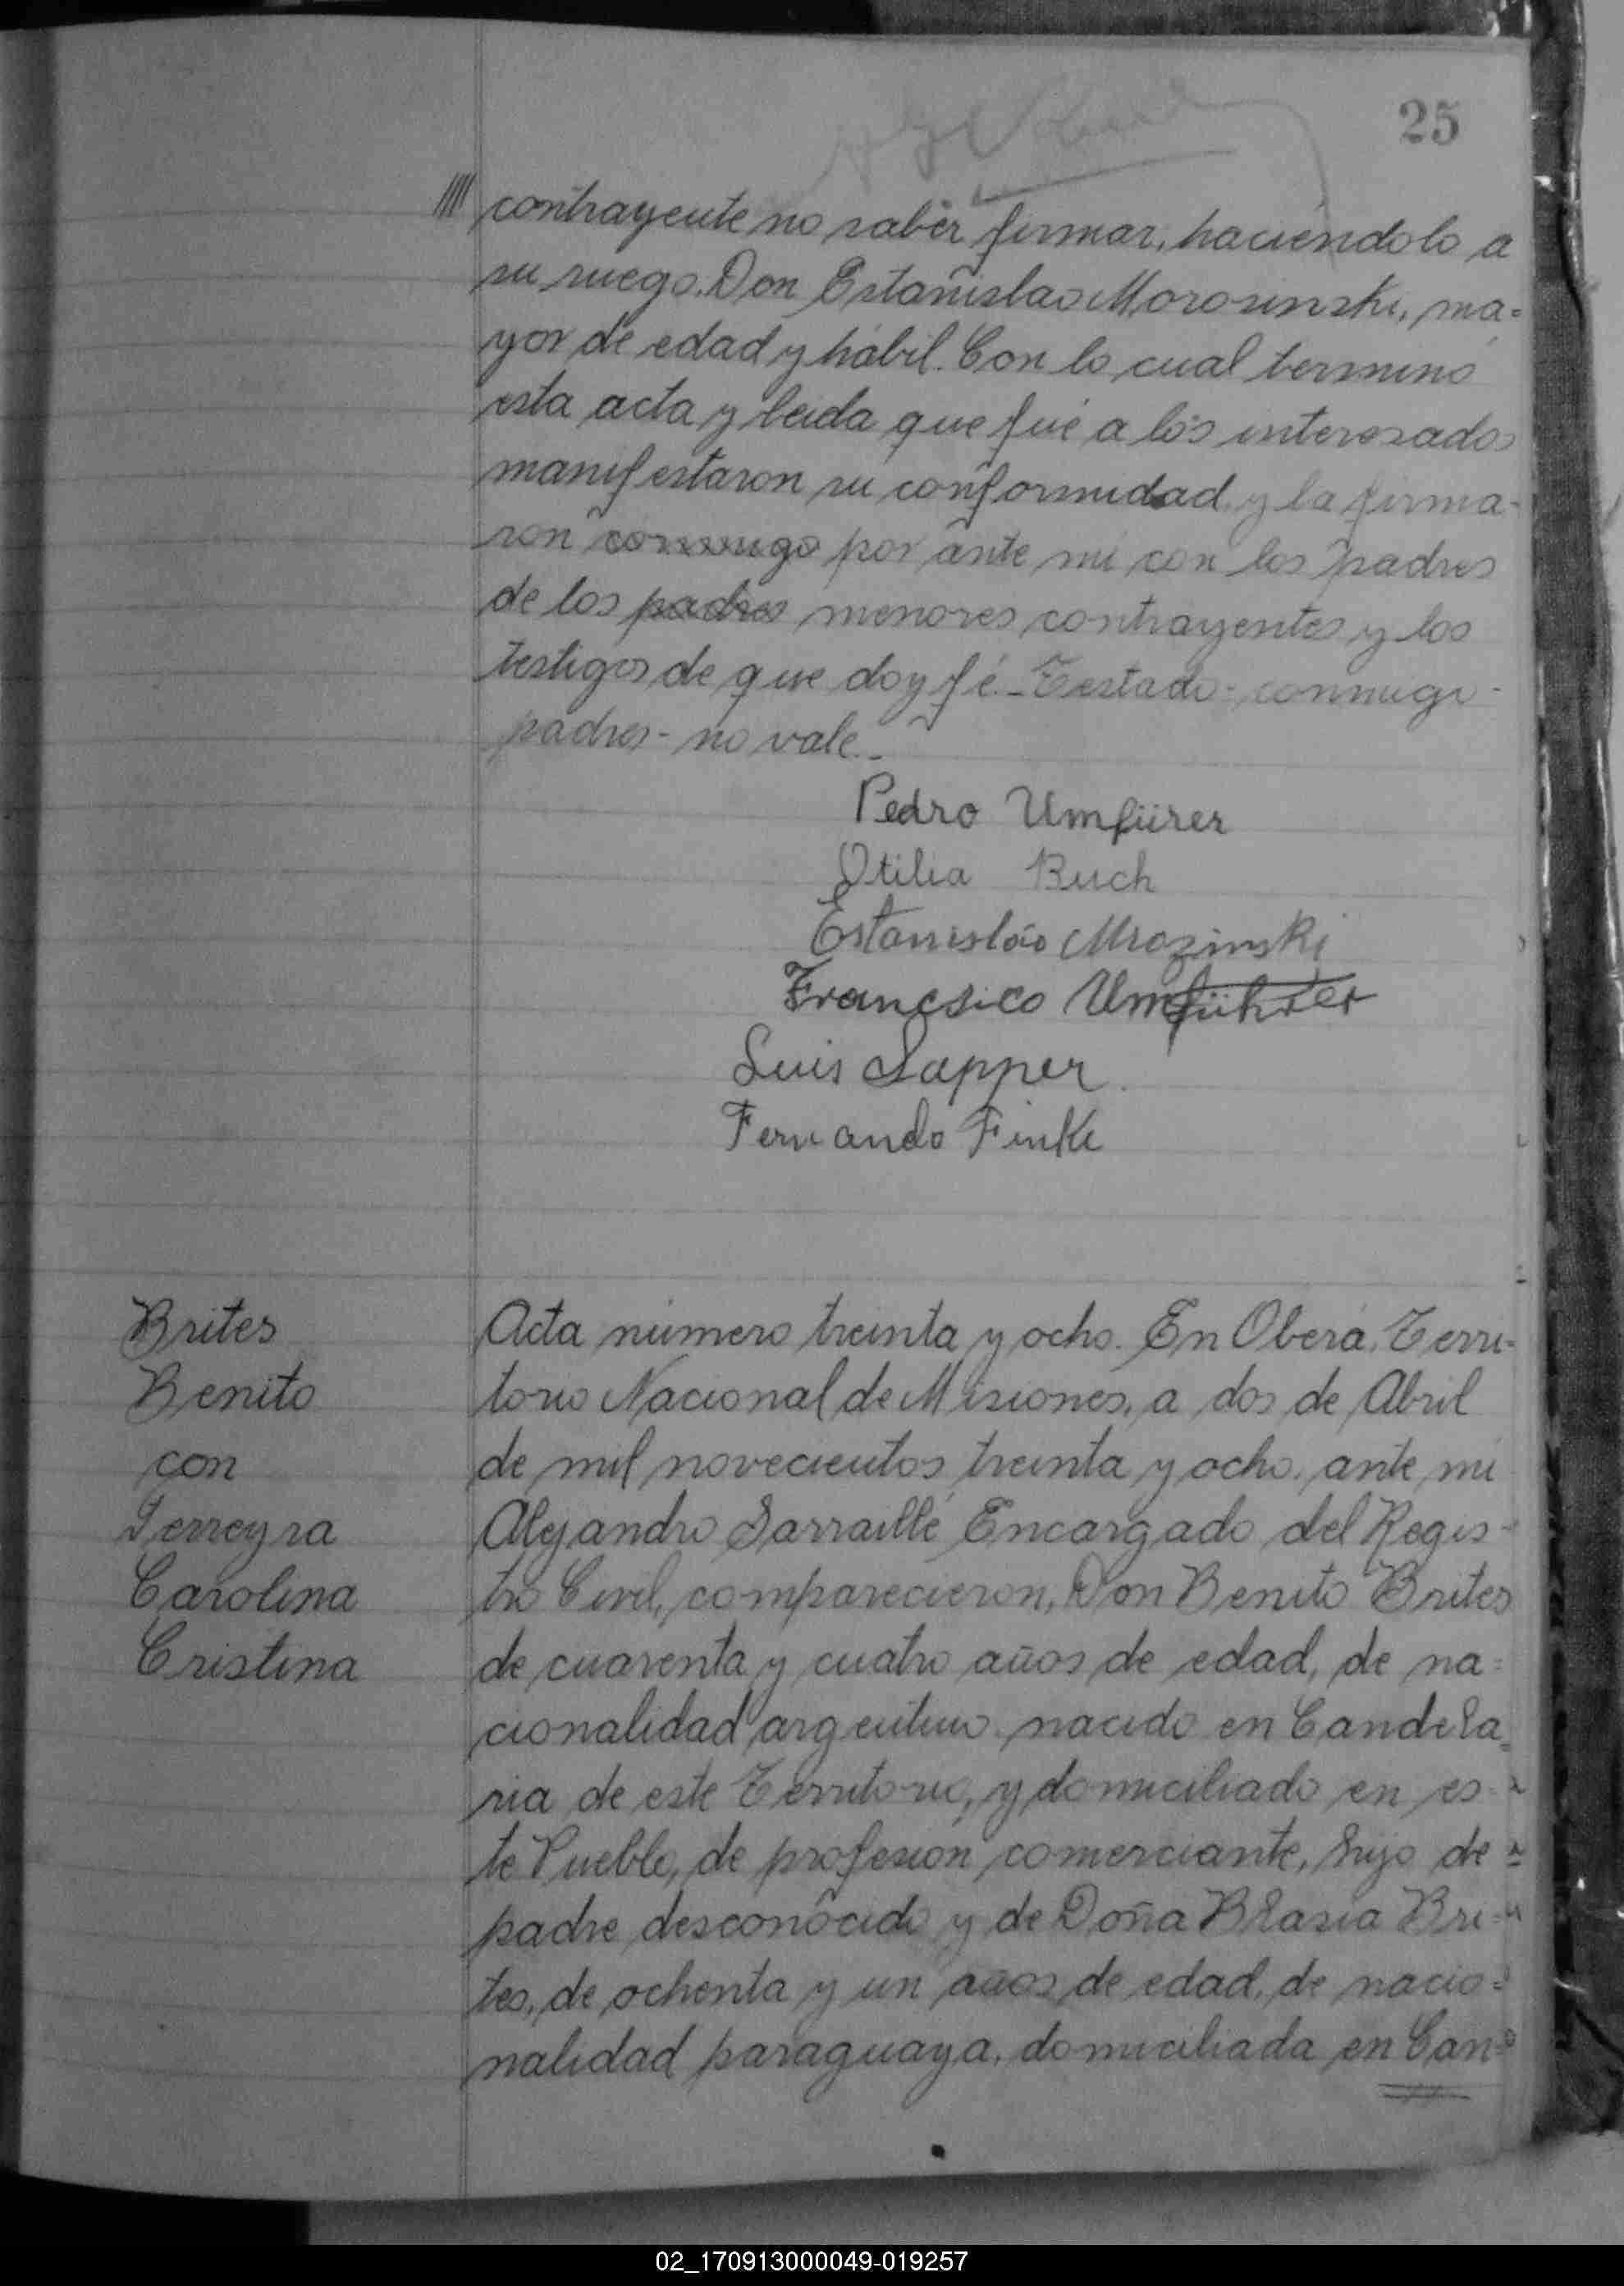 25
contrayente no saber firmar, haciendolo a
su ruego. Don Estanislao Morosinski, ma=
yor de edad y hábil. Con lo cual terminó
esta acta y leida que fué a los interesados
manifestaron su conformidad y la firma-
ron conmigo por ante mi con los padres
de los padres menores contrayentes y los
testigos de que doy fé.- Testado- conmigo-
padres- no vale.-
Pedro Umfürer
Otilia Ruch
Estanislão Mrozinski
Francsico Umführer
Luis Sapper
Fernando Finke
Brites
Benito
con
Ferreyra
Carolina
Cristina
Acta número treinta y ocho. En Oberá, Terri-
torio Nacional de Misiones, a dos de Abril
de mil novecientos treinta y ocho, ante mi
Alejandro Sarraillé Encargado del Regis-
tro Civil, comparecieron, Don Benito Brites
de cuarenta y cuatro años de edad, de na=
cionalidad argentino nacido en Candela=
ria de este Territorio, y domiciliado en es-
te Pueblo, de profesión comerciante, hijo de
padre desconocido y de Doña Blasia Bri=
tes, de ochenta y un años de edad, de nacio=
nalidad paraguaya, domiciliada en Can=
02_170913000049-019257